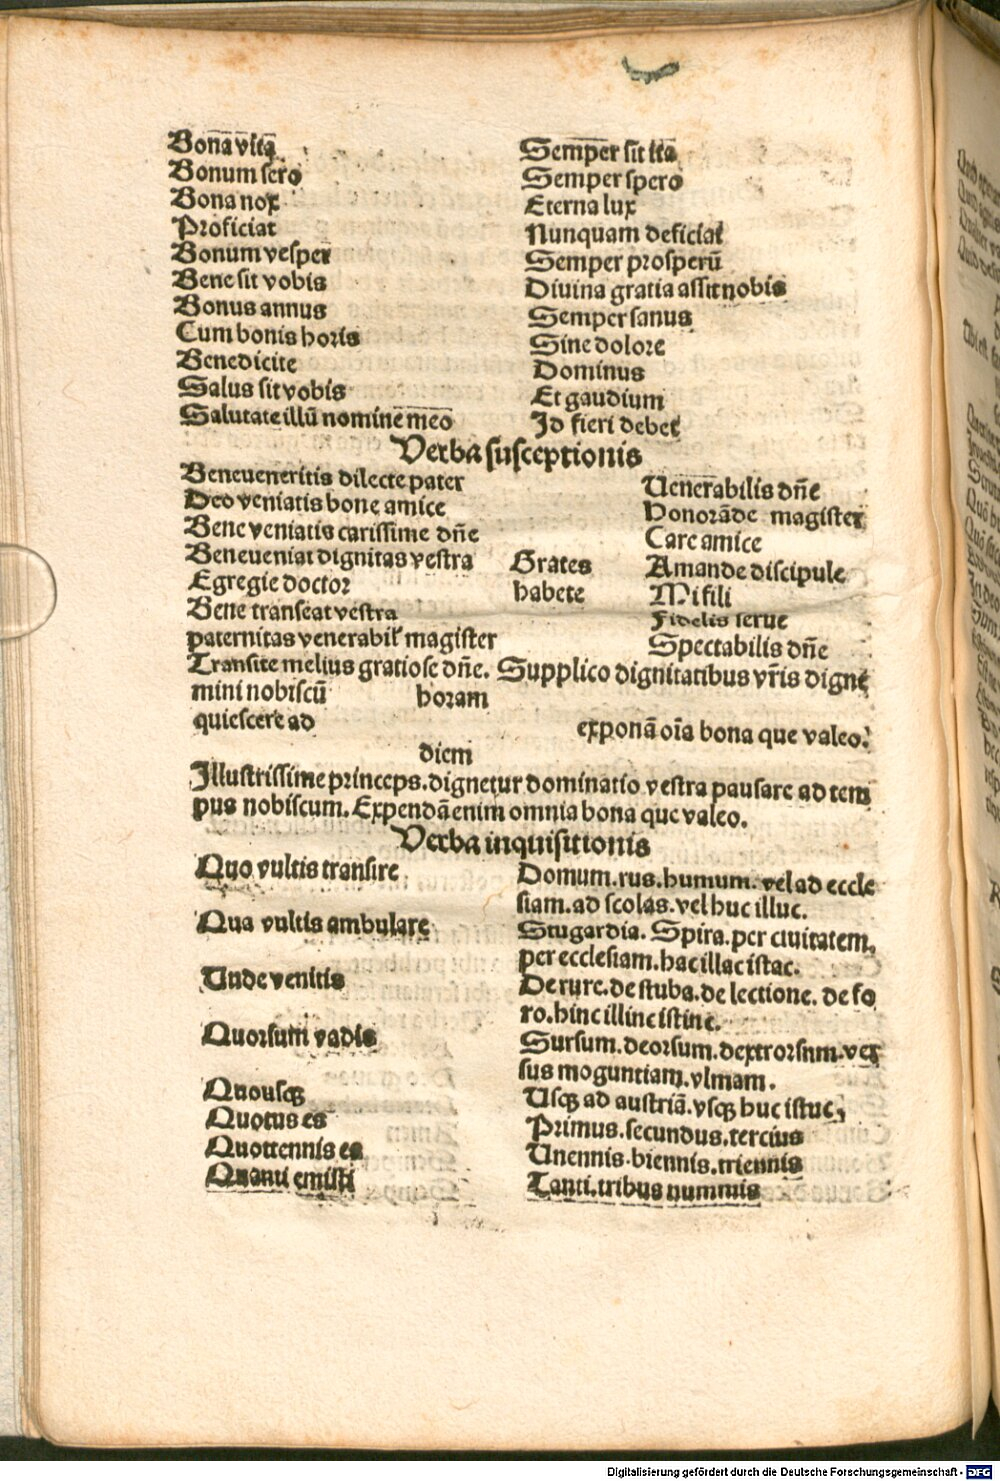 Bona vita Semper sit ita
Bonum sero Semper spero
Bona nox Eterna lux
Proficiat Nunquam deficiat
Bonum vesper Semper prosperū
Bene sit vobis Diuina gratia assit nobis
Bonus annus Semper sanus
Cum bonis horis Sine dolore
Benedicite Dominus
Salus sit vobis Et gaudium
Salutate illū nomine meo Id fieri debet
Verba susceptionis
Beneueneritis dilecte pater Venerabilis dn̄e
Deo veniatis bone amice Honorāde magister
Bene veniatis carissime dn̄e Care amice
Beneueniat dignitas vestra Grates Amande discipule
Egregie doctor habete Mi fili
Bene transeat vestra Fidelis serue
paternitas venerabil' magister Spectabilis dn̄e
Transite melius gratiose dn̄e. Supplico dignitatibus vr̄is digne
mini nobiscū horam
quiescere ad exponā oīa bona que valeo.
diem
Illustrissime princeps. dignetur dominatio vestra pausare ad tem
pus nobiscum. Expendā enim omnia bona que valeo.
Verba inquisitionis
Quo vultis transire Domum. rus. humum. vel ad eccle
siam. ad scolas. vel huc illuc.
Qua vultis ambulare Stugardia. Spira. per ciuitatem.
per ecclesiam. hac illac istac.
Unde venitis De rure. de stuba. de lectione. de fo
ro. hinc illinc istinc.
Quorsum vadis Sursum. deorsum. dextrorsnm. ver
sus moguntiam. vlmam.
Quousqꝫ Usqꝫ ad austriā. vsqꝫ huc istuc,
Quotus es Primus. secundus. tercius
Quottennis es Unennis. biennis. triennis
Quanti emisti Tanti. tribus nummis
Digitalisierung gefördert durch die Deutsche Forschungsgemeinschaft - DFG